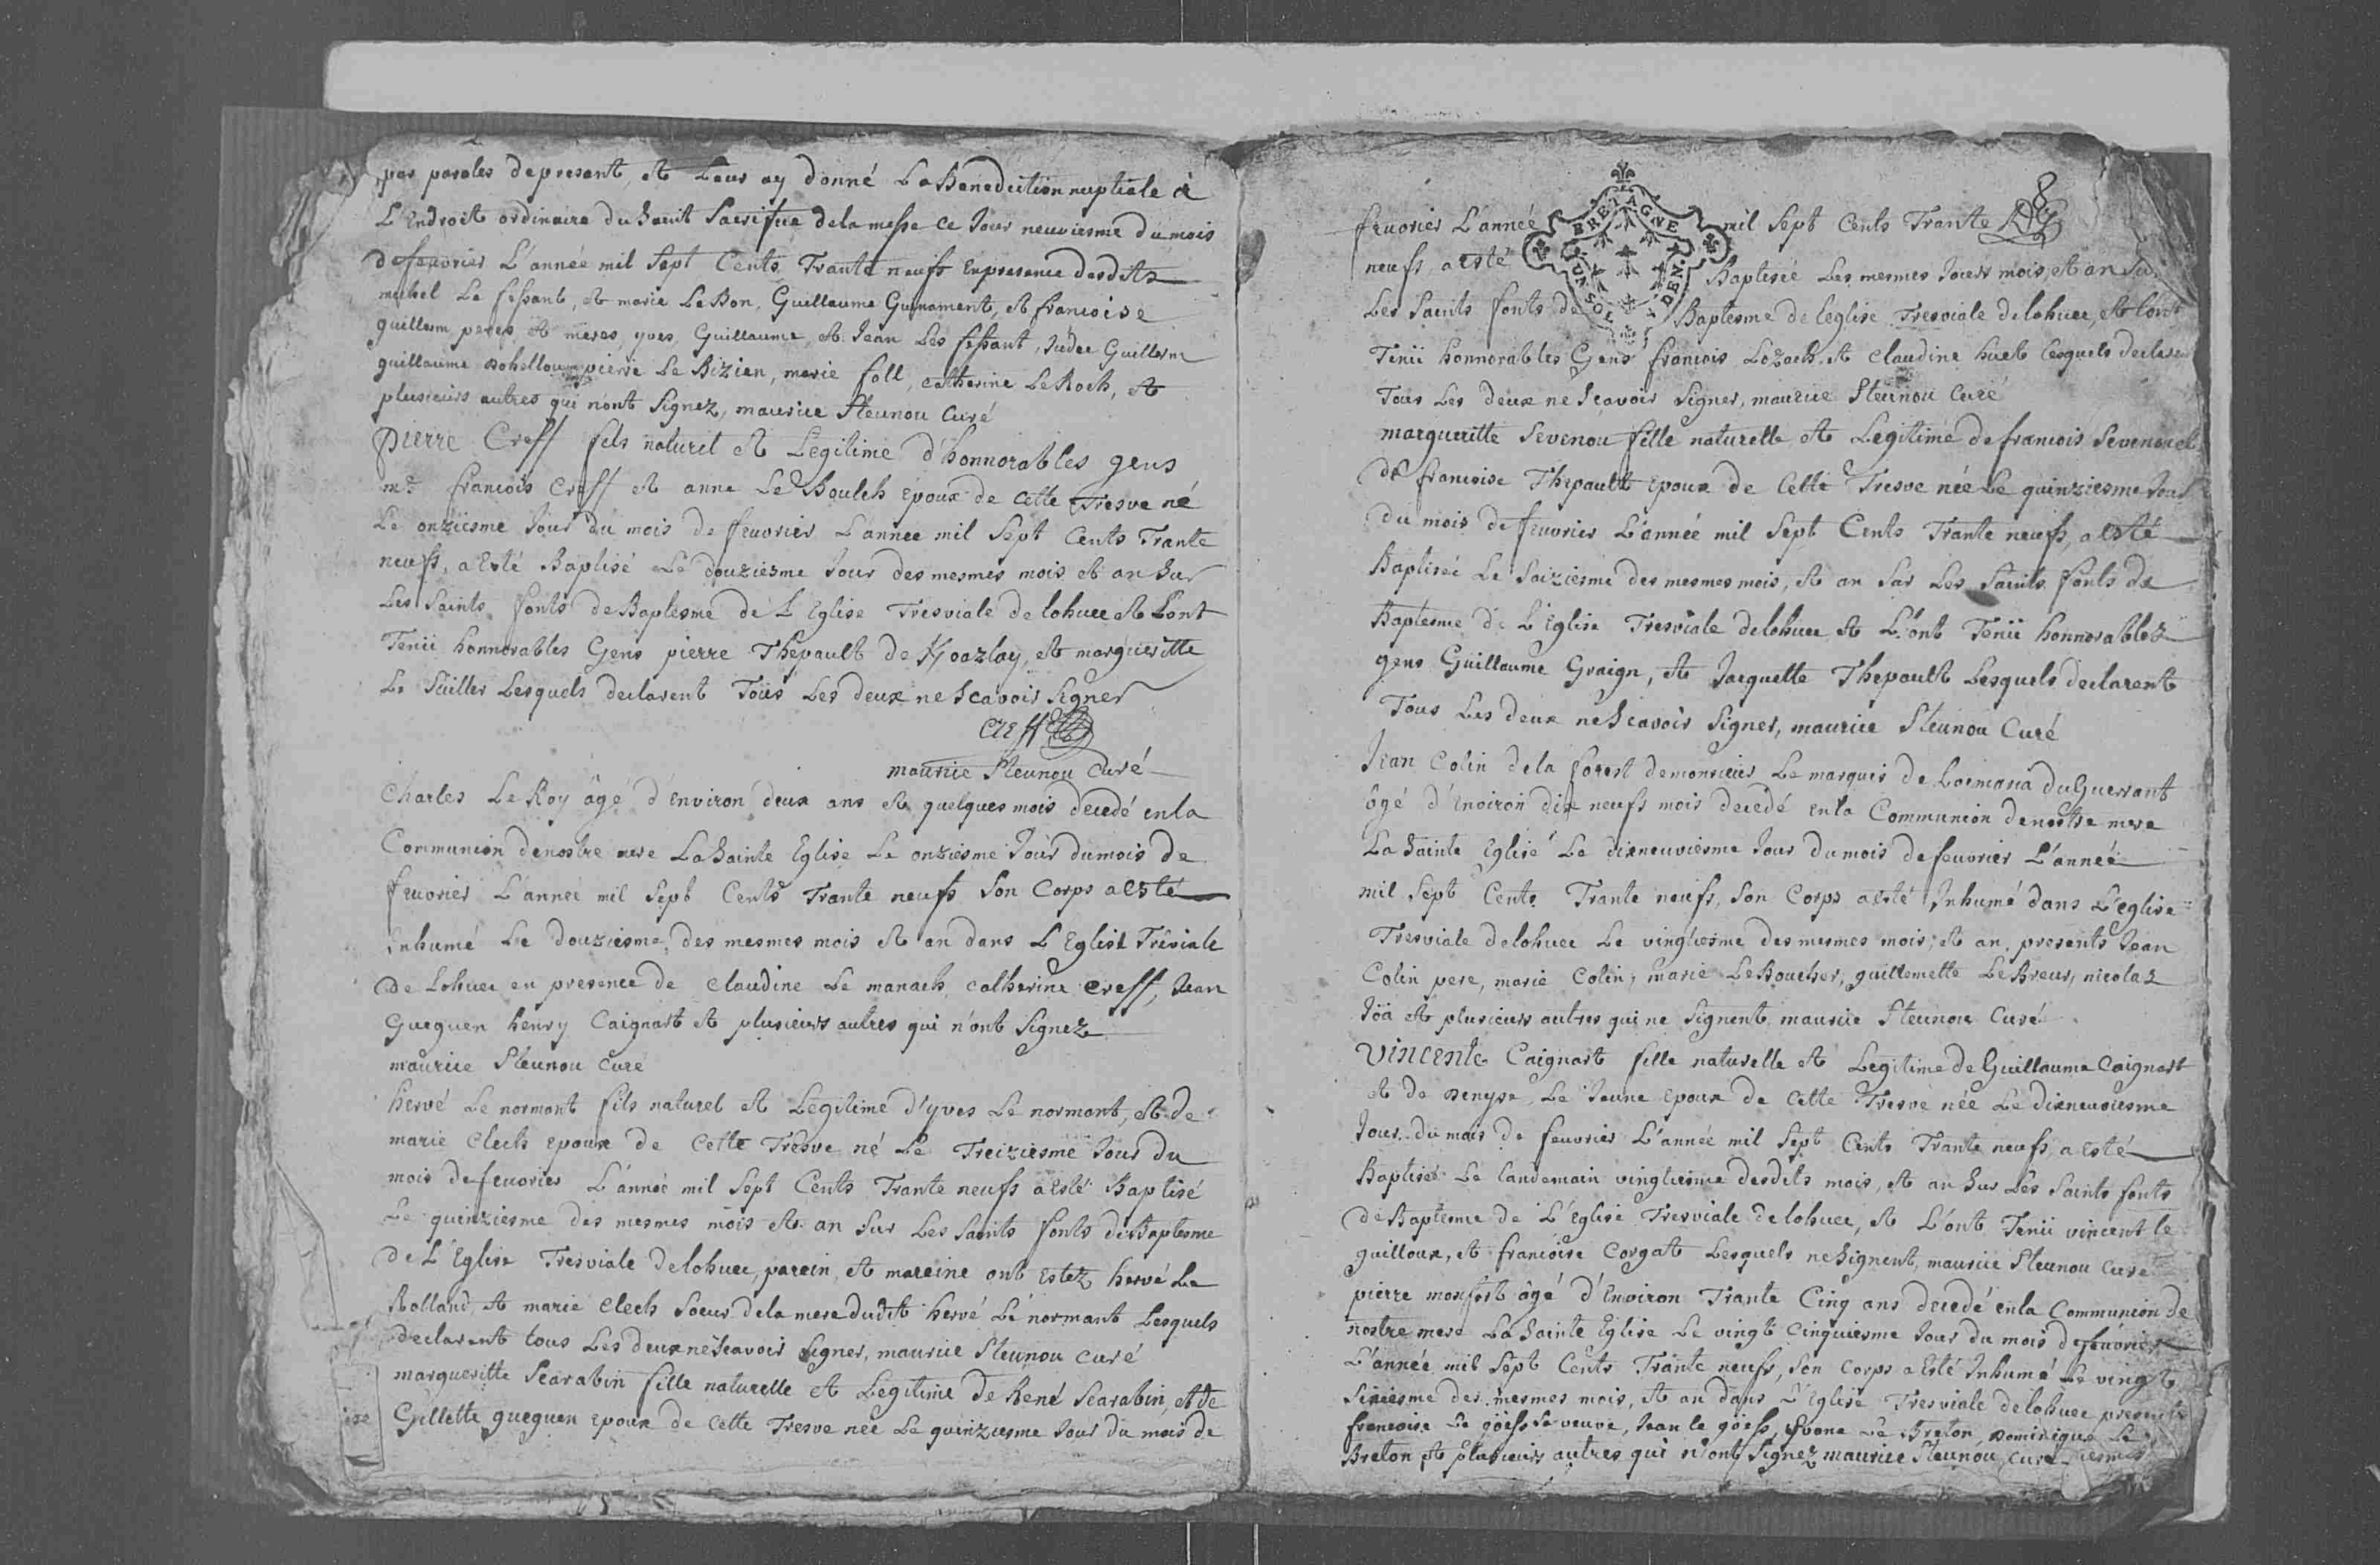 par paroles de present, et Leur ay donné La Benediction nuptiale à
L'Endroit ordinaire du Saint Sacrifice de la messe ce Jour neuviesme du mois
de feuvrier L'année mil Sept Cents Trante neufs En presence desdits
michel Le fessant, et marie Le Bon, Guillaume Guinament, et francoise
guillerm peres et meres, yves, Guillaume, et Jean Les fessant, Judee Guillerm
guillaume Bohellou pierre Le Bizien, marie foll, catherine Le Roch, et
plusieurs autres qui n'ont Signez, maurice Steunou Curé
Pierre Creff fils naturel et Legitime d'honnorables gens
me francois Creff et anne Le Bouleh Epoux de cette Tresve né
Le onziesme Jour du mois de feuvrier L'année mil Sept Cents Trante
neufs, a Esté Baptisé Le douziesme Jour des mesmes mois et an Sur
Les Saints fonts de Baptesme de L'Eglise Tresviale de lohuec et L'ont
Tenü honnorables Gens pierre Thepault de Kgoazlay, et margueritte
Le Suiller Lesquels declarent Toüs Les deux ne Scavoir Signer
Creff
maurice Steunou Curé
Charles Le Roy âgé d'Environ deux ans et quelques mois decedé en la
Communion de nostre mere La Sainte Eglise Le onziesme Jour du mois de
feuvrier L'année mil Sept Cents Trante neufs Son Corps a Esté
Inhumé Le douziesme des mesmes mois et an dans L'Eglise Trèviale
de Lohuec en presence de claudine Le manach catherine creff, Jean
Gueguen henry Caignart et plusieurs autres qui n'ont Signez
maurice Steunou Curé
hervé Le normant fils naturel et Legitime d'yves Le normant, et de
marie Clech Epoux de Cette Tresve né Le Treiziesme Jour du
mois de feuvrier L'année mil Sept Cents Trante neufs a Esté Baptisé
Le quinziesme des mesmes mois et an Sur Les Saints fonts de Baptesme
de L'Eglise Tresviale de lohuec, parein, et mareine ont Estez hervé Le
Rolland, et marie Clech Soeur de la mere dudit hervé Le normant Lesquels
declarent tous Les deux ne Scavoir Signer, maurice Steunou curé
margueritte Scarabin fille naturelle et Legitime de René Scarabin, et de
Gillette gueguen Epoux de Cette Tresve née Le quinziesme Jour du mois de
8
feuvrier L'année mil Sept Cents Trante
neufs, a esté Baptisée Les mesmes Jours mois, et an Sur
Les Saints fonts de Baptesme de leglise Tresviale de lohuec, et l'ont
Tenü honnorables Gens francois Lozach, et claudine huet Lesquels declarent
Tous Les deux ne Scavoir Signer, maurice Steunou Curé
margueritte Sevenou fille naturelle et Legitime de francois Sevenou et
de francoise Thepault Epoux de Cette Tresve née Le quinziesme Jour
du mois de feuvrier L'année mil Sept Cents Trante neufs, a Esté
Baptisée Le Saiziesme des mesmes mois, et an Sur Les Saints fonts de
Baptesme de L'Eglise Tresviale de lohuec, et L'ont Tenü honnorables
gens Guillaume Graign, et Jacquette Thepault Lesquels declarent
Tous Les deux ne Scavoir Signer, maurice Steunou Curé
Jean Colin de la forest de monsieur Le marquis de Locmaria du Guerrant
âgé d'Environ dix neufs mois decedé en la Communion de nostre mere
La Sainte Eglise Le dixneuviesme Jour du mois de feuvrier L'année
mil Sept Cents Trante neufs, Son Corps a esté Inhumé dans L'eglise
Tresviale de lohuec Le vingtiesme des mesmes mois, et an, presents Jean
Colin pere, marie Colin, marie Le Boucher, guillemette Le Breur, nicolas
Joa et plusieurs autres qui ne Signent, maurice Steunou Curé
Vincente Caignart fille naturelle et Legitime de Guillaume Caignart
et de Denyse Le Jeune Epoux de Cette Tresve née Le dixneuviesme
Jour du mois de feuvrier L'année mil Sept Cents Trante neufs, a Esté
Baptisée Le Landemain vingtiesme desdits mois, et an Sur Les Saints fonts
de Baptesme de L'Eglise Tresviale de lohuec, et L'ont Tenü vincent le
guilloux, et francoise Corgat Lesquels ne Signent, maurice Steunou Curé
pierre monfort âgé d'Environ Trante Cinq ans decedé en la Communion de
nostre mere La Sainte Eglise Le vingt Cinquiesme Jour du mois de feuvrier
L'année mil Sept Cents Trante neufs, Son Corps a Esté Inhumé Le vingt
Sixiesme des mesmes mois, et an dans L'Eglise Tresviale de lohuec presents
francoise Le göeff Sa veuve, Jean le göeff, Yvone Le Breton, Dominique Le
Breton et plusieurs autres qui n'ont Signez maurice Steunou, curé
BRETAGNE